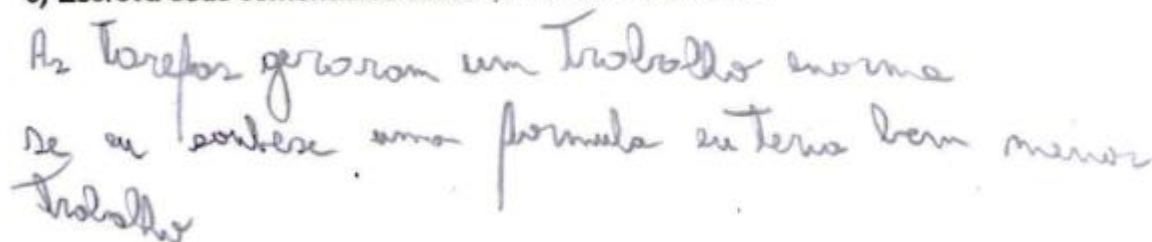 As tarefas geraram um trabalho enorme
se eu soubese uma formula eu teria bem menos
trabalho